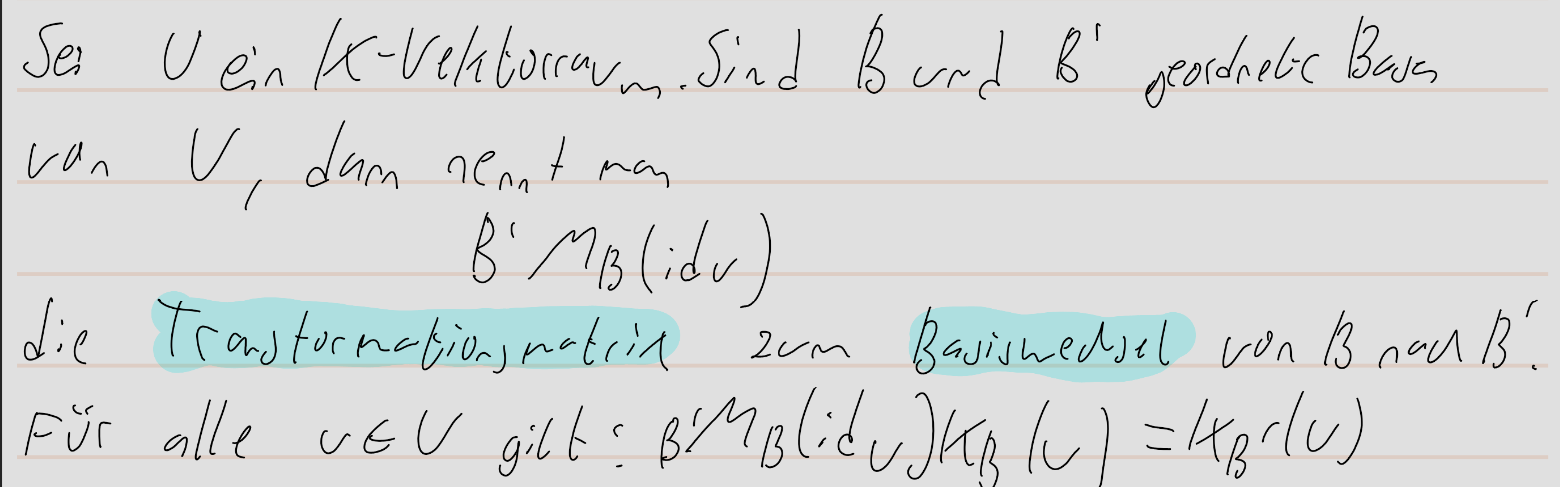 Sei V ein K-Vektorraum. Sind B und B' geordnete Basen
von V, dann nennt man
B' M_B(id_V)
die Transformationsmatrix zum Basiswechsel von B nach B'.
Für alle v ∈ V gilt: B' M_B(id_V) K_B(v) = K_B'(v)